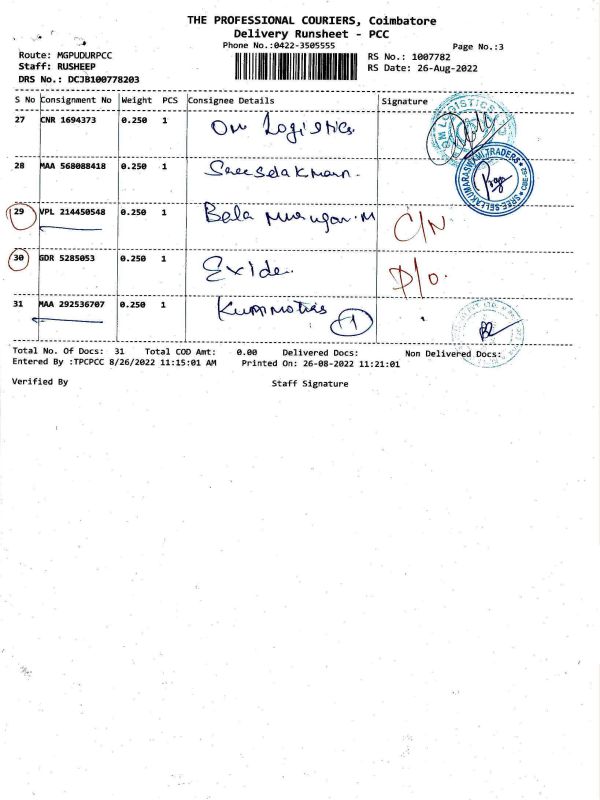 THE PROFESSIONAL COURIERS, Coimbatore
Delivery Runsheet - PCC
Phone No.:0422-3505555
Page No.:3
Route: MGPUDURPCC
Staff: RUSHEEP
DRS No.: DCJB100778203
RS No.: 1007782
RS Date: 26-Aug-2022
S No Consignment No Weight PCS Consignee Details Signature
27 CNR 1694373 0.250 1 Om Logistics
28 MAA 568088418 0.250 1
SREE SELLAKUMARASWAMI TRADERS
29 VPL 214450548 0.250 1 Bala Murugan.M C/N
30 GDR 5285053 0.250 1 Exide D/O.
31 MAA 292536707 0.250 1
Total No. Of Docs: 31 Total COD Amt: 0.00 Delivered Docs: Non Delivered Docs:
Entered By :TPCPCC 8/26/2022 11:15:01 AM Printed On: 26-08-2022 11:21:01
Verified By Staff Signature